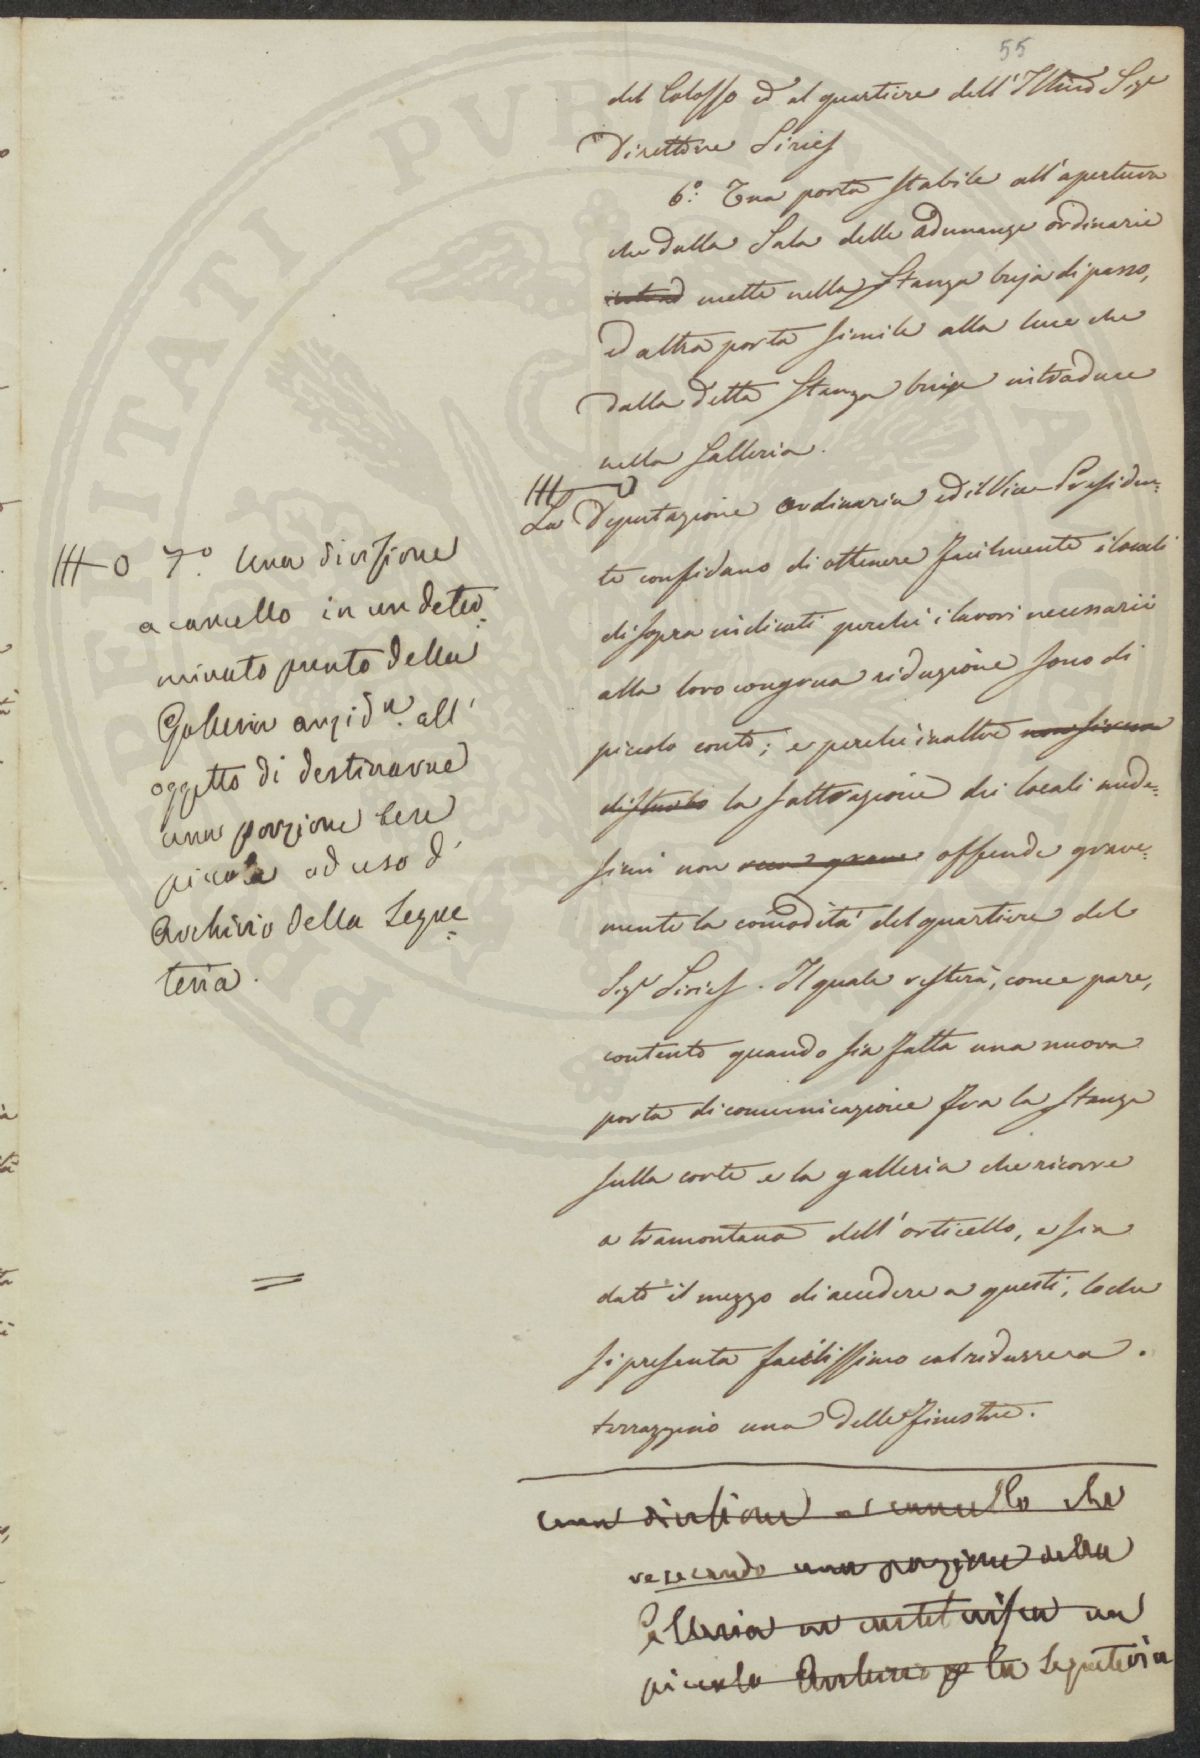 55
del Colosso ed al quartiere dell' Illmo Sigr
Direttore Siries
6.° Una porta stabile all'apertura
che dalla Sala delle adunanze ordinarie
mette nella Stanza buja di passo,
ed altra porta simile alla luce che
dalla detta Stanza buja introduce
nella Galleria.
La Deputazione ordinaria ed il Vice-Presiden=
te confidano di ottenere facilmente i locali
di sopra indicati perché i lavori necessarii
alla loro congrua riduzione sono di
piccolo conto; e perché inoltre non si reca
disturbo la sottrazione dei locali mede=
simi non reca grave offende grave=
mente la comodità del quartiere del
Sigr Siries. Il quale resterà, come pare,
contento quando sia fatta una nuova
porta di comunicazione fra la Stanza
sulla corte e la galleria che ricorre
a tramontana dell'orticello, e sia
dato il mezzo di accedere a questi, lo che
si presenta facilissimo col ridurre a
terrazzino una delle finestre.
una divisione a cancello che
resecando una porzione della
Galleria ne costituisca un
piccolo Archivio per la Segreteria
7.° Una divisione
a cancello in un deter=
minato punto della
Galleria anzid.a all'
oggetto di destinarne
una porzione bene
piccola ad uso d'
Archivio della Segre=
teria.